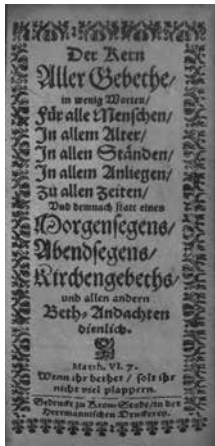 Der Kern
Aller Gebethe/
in wenig Worten/
Für alle Menschen/
In allem Alter/
In allen Ständen/
In allem Anliegen/
Zu allen Zeiten/
Und demnach statt eines
Morgensegens/
Abendsegens/
Kirchengebeths/
und allen andern
Beth-Andachten
dienlich.
Matth. VI. 7.
Wenn ihr bethet/ solt ihr
nicht viel plappern.
Gedruckt zu Kron-Stadt/in der
Herrmannischen Druckerey.